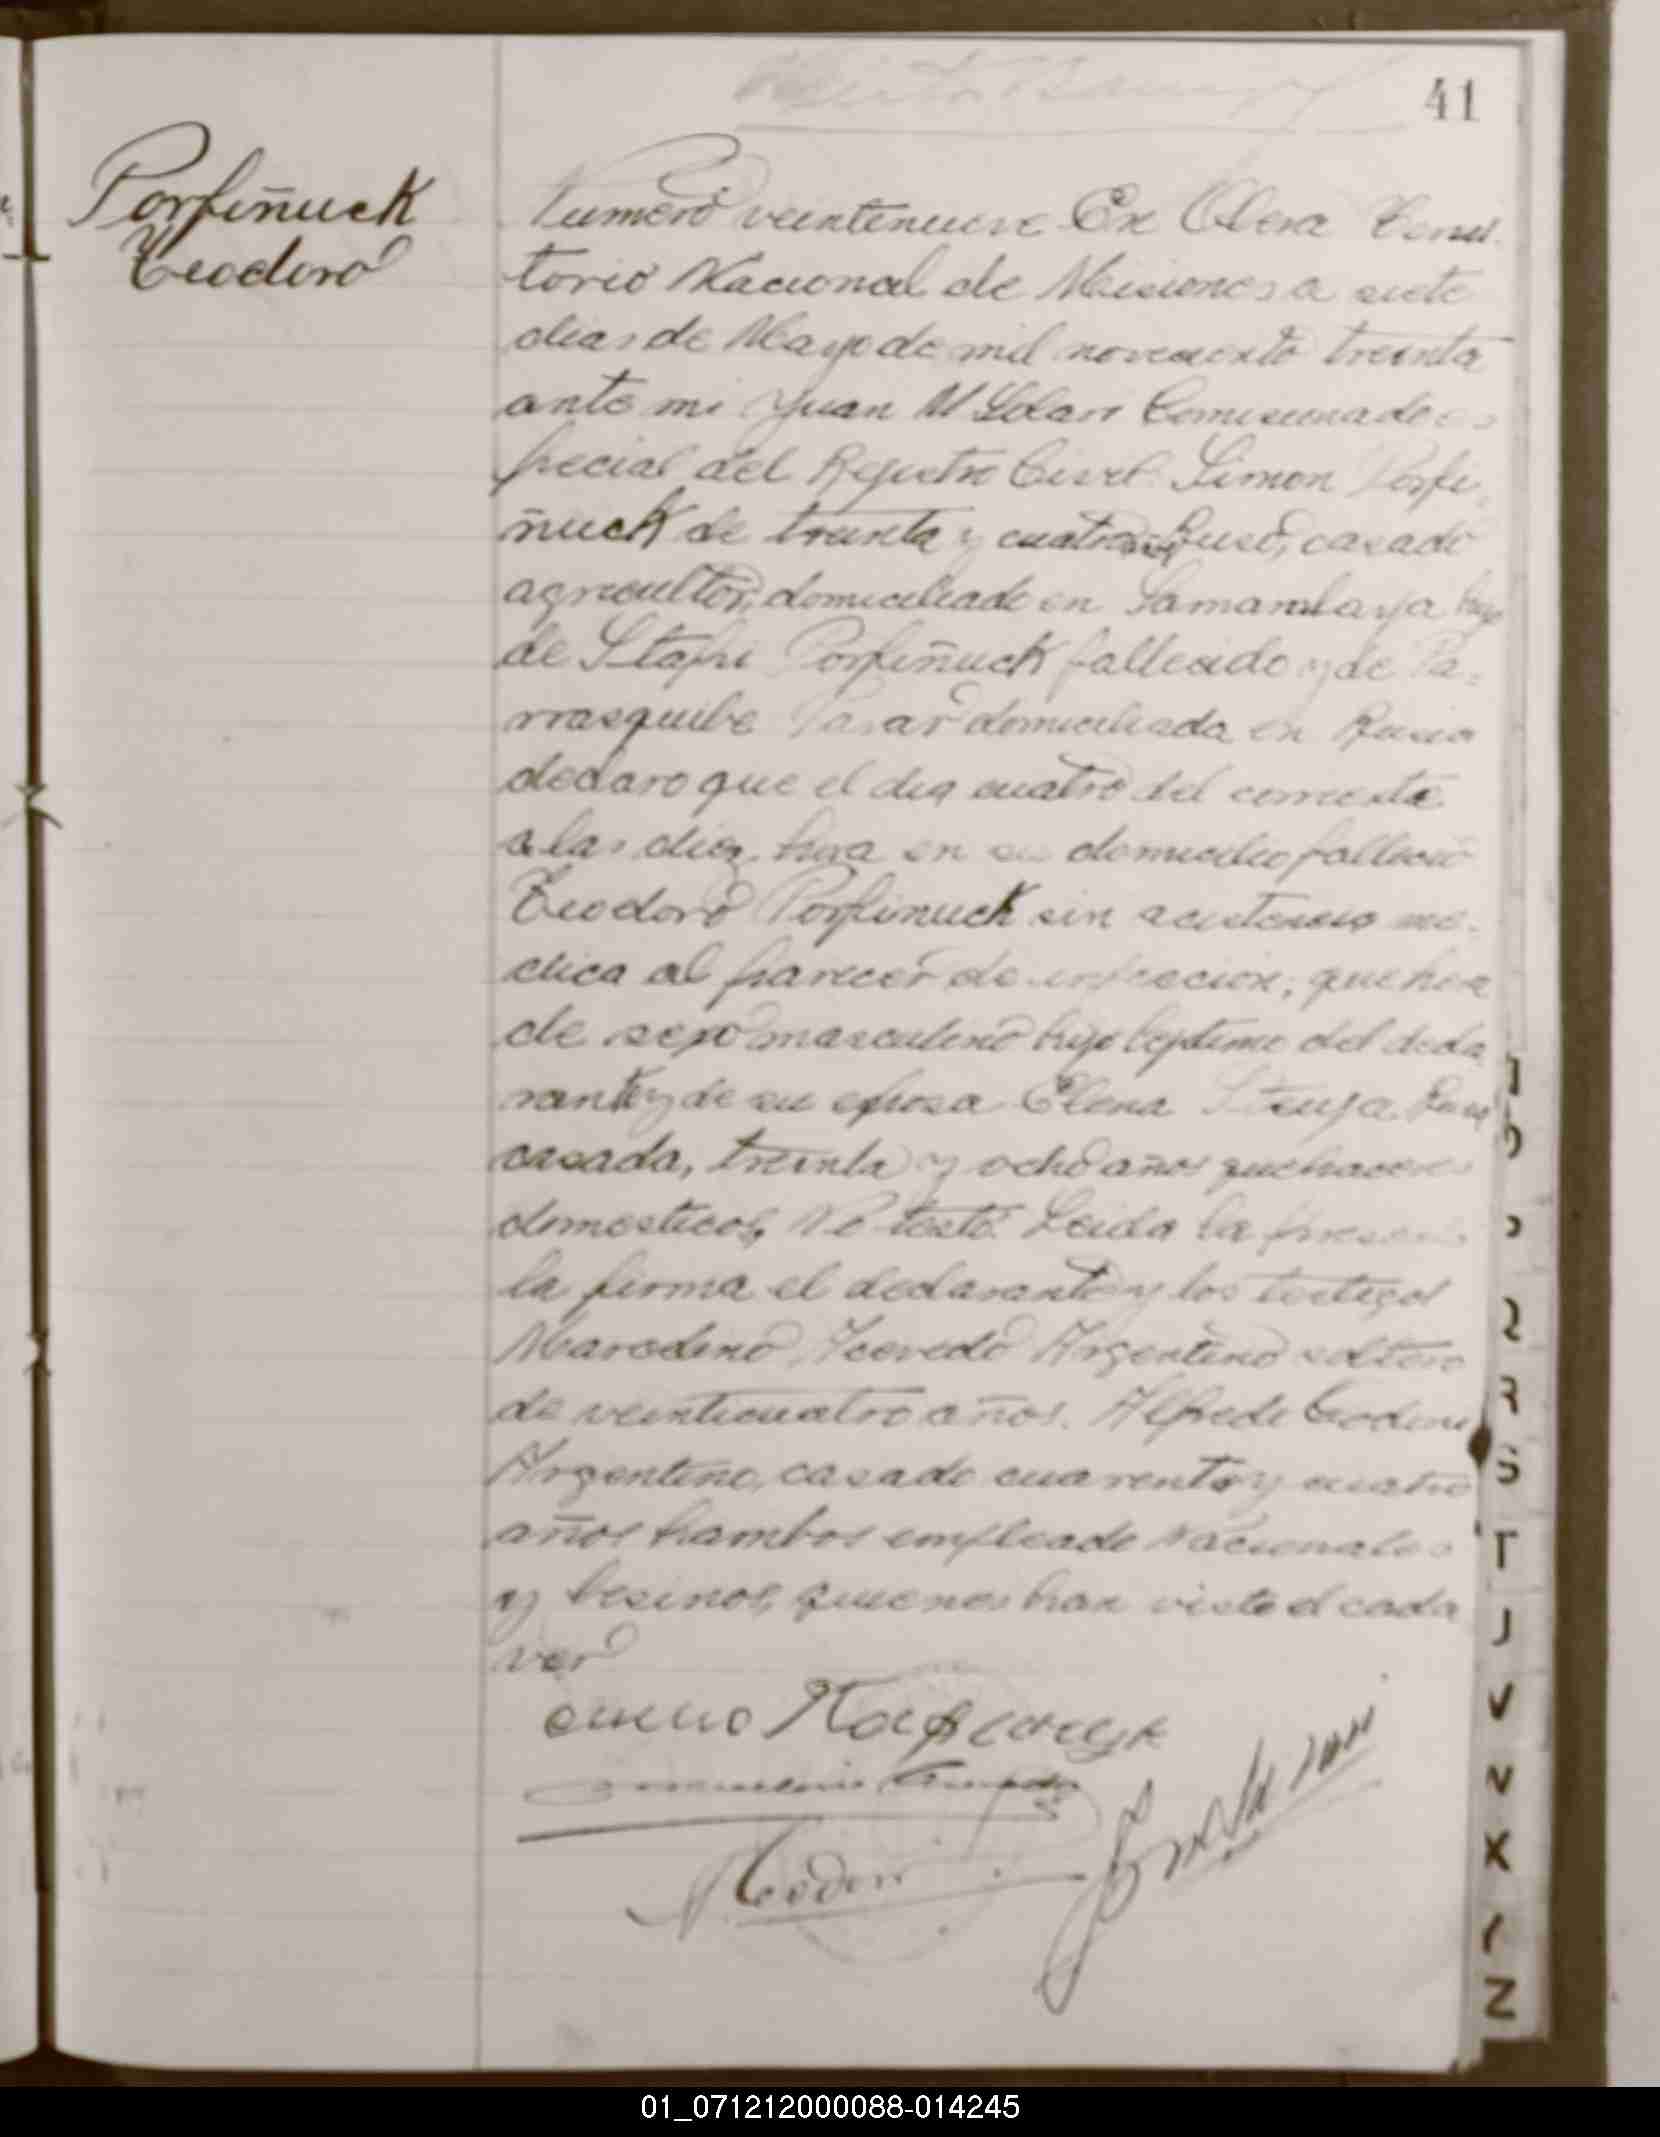 41
Porfiñuck
Teodoro
Numero veintenueve En Obera Terri-
torio Nacional de Misiones a siete
dias de Mayo de mil novesiento treinta
ante mi Juan M Solari Comisionado es
pecial del Registro Civil Simon Porfi-
ñuck de treinta y cuatro Ruso, casado
agricultor, domiciliado en hijo
de Porfiñuck fallecido y de Pa-
rrasquibe domiciliada en Rusia
declaro que el dia cuatro del corriente
a las diez hora en su domicilio fallecio
Teodoro Porfinuck sin acistencia me-
dica al parecer de infeccion, que hera
de sexo masculino hijo leptimo del decla
rante y de su esposa Elena Rusa
casada, treinta y ocho años quehaceres
domesticos, No testó. Leida la presente
la firma el declarante y los testigos
Marcelino Acevedo Argentino soltero
de veinticuatro años. Alfredo
Argentino, casado cuarenta y cuatro
años hambos empleado Nacionales
y besinos, quienes han visto el cada
ver
01_071212000088-014245